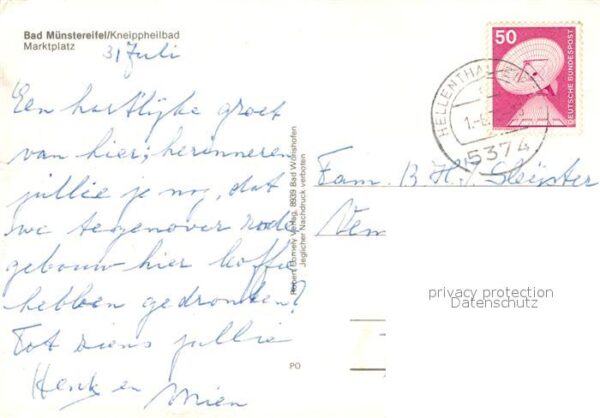 Bad Münstereifel/Kneippheilbad
Marktplatz
31 Juli
Een hartlijke groet
van hier; herinneren
jullie je nog, dat
we tegenover rode
gebouw hier koffie
hebben gedronken?
Tot ziens jullie
Henk en
Mien
50
DEUTSCHE BUNDESPOST
HELLENTHAL
5374
Fam. B H. Sleijster
privacy protection
Datenschutz
Verlag, 8939 Bad Wörishofen
Jeglicher Nachdruck verboten
PO